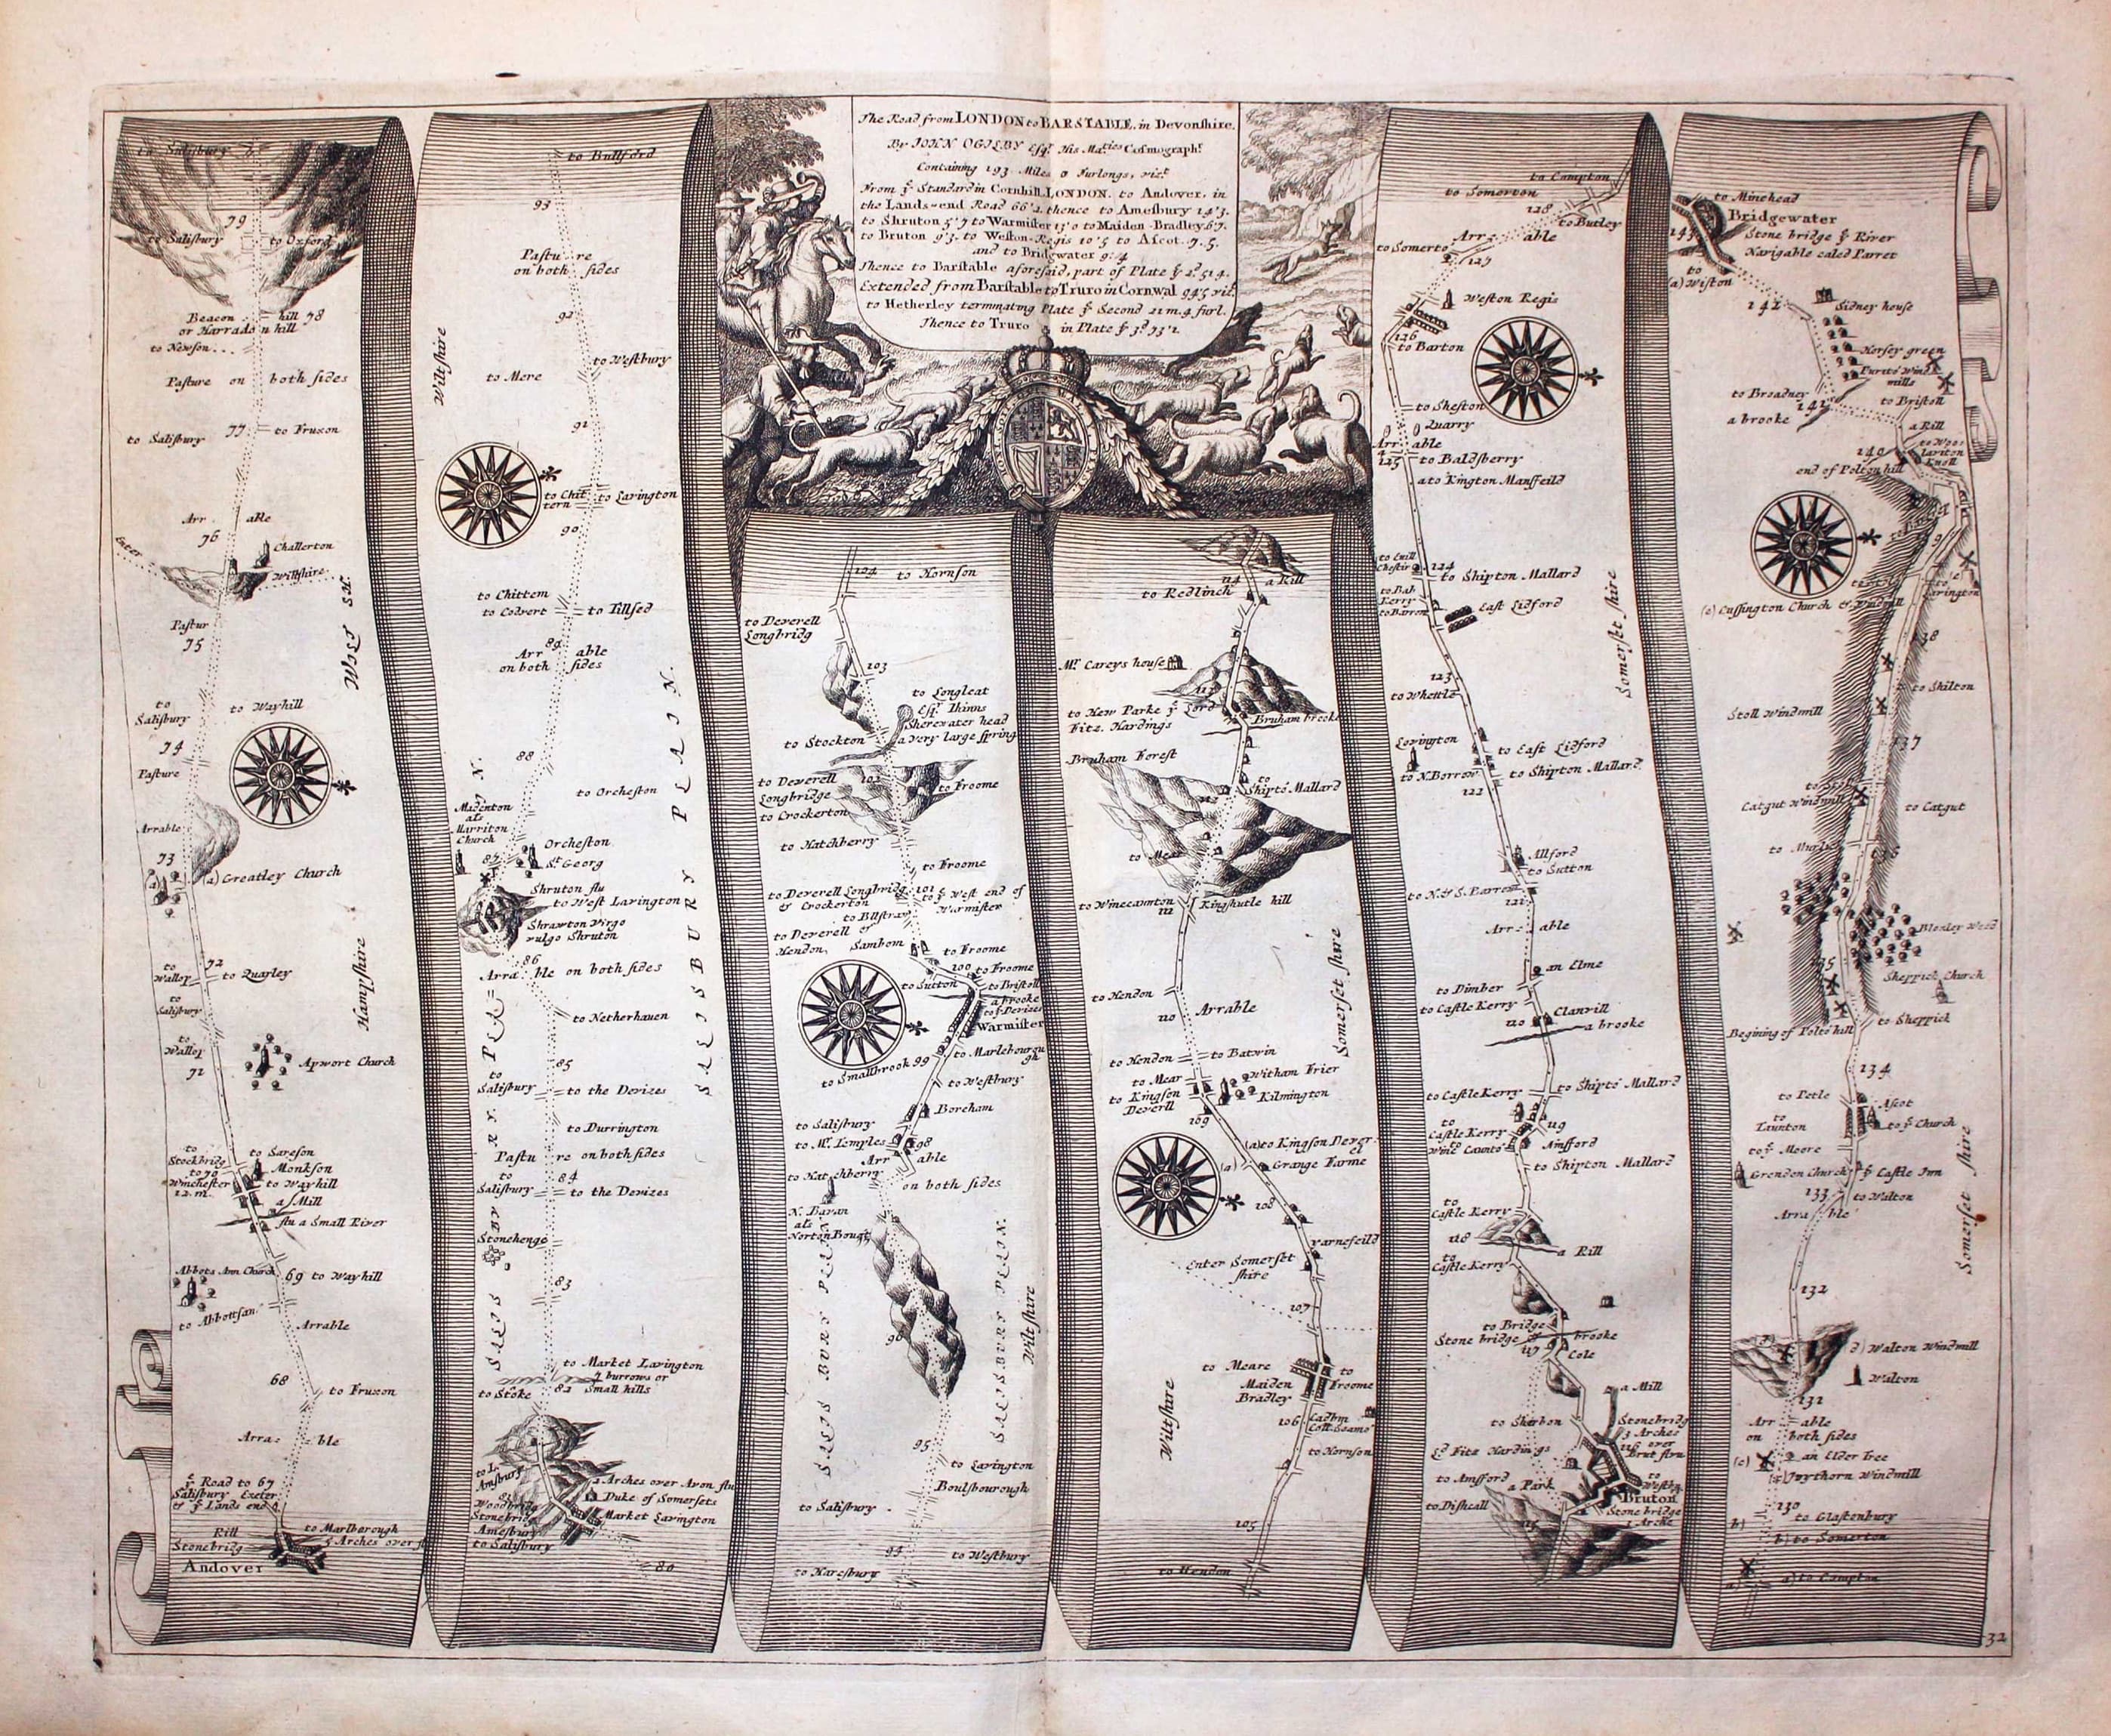 The Road from LONDON to BARSTABLE in Devonshire.
By IOHN OGILBY Esqr. His Maties Cosmographr.
Containing 193 Miles 0 Furlongs, vizt.
From ye Standard in Cornhill LONDON. to Andover. in
the Lands-end Road 66'2. thence to Amesbury 14'3.
to Shruton 5'7 to Warmister 13'0 to Maiden-Bradley 6'7.
to Bruton 9'3. to Weston-Regis 10'5 to Ascot. 7.5.
and to Bridgwater 9:4
Thence to Barstable aforesaid, part of Plate ye 2d 51 4.
Extended from Barstable to Truro in Cornwal 94'5 vizt
to Hetherley terminating Plate ye Second 22 m.4 furl.
Thence to Truro in Plate ye 3d 73'1.
to Salisbury
79
to Salisbury
to Oxford
Beacon hill 78
or Harradon hill
to Newson...
Pasture on both sides
77
to Salisbury
to Fruxon
Arr able
76
Enter
Challerton
Wiltshire
West PS.
Pastur
75
to Salisbury
to Wayhill
74
Pasture
Arrable
73
(a)
(a) Greatley Church
72
to Wallop
to Quarley
to Salisbury
Hampshire
to Wallop
71
Apwort Church
to Stockbridg
to 70
Winchester
12.m.
to Sareson
Monkson
to Wayhill
a Mill
flu a Small River
Abbots Ann Church
69
to Wayhill
to Abbottsan
Arrable
68
to Fruxon
Arra ble
ye Road to 67
Salisbury Exeter
& ye Lands end
Rill
Stonebridg
to Marlborough
5 Arches over
Andover
to Bullford
93
Pastu re
on both sides
92
Wiltshire
to Westbury
to Mere
91
to Chittern
to Lavington
90
to Chittern
to Codvert
to Tillsed
89
Arr able
on both sides
88
to Orcheston
Madenton
als
Harriton
Church
87
Orcheston
St. Georg
Shruton flu
to West Lavington
Shrawton Virgo
vulgo Shruton
86
Arra ble on both sides
to Netherhaven
85
to Salisbury
to the Devizes
to Durrington
Pastu re on both sides
84
to Salisbury
to the Devizes
Stonehenge
83
SALISBURY PLAIN.
SALISBURY PLAIN.
to Market Lavington
7 burrows or
Small hills
to Stoke
82
to L. Amsbury
Arches over Avon flu
Duke of Somersets
Market Lavington
81
Woodbridg
Stonebrid
Amesbury
to Salisbury
80
104
to Hornson
to Deverell
Longbridg
103
to Longleat
Esqr. Thinns
Sherewater head
a very large spring
to Stockton
to Deverell
Longbridge
102
to Froome
to Crockerton
to Hatchberry
to Froome
to Deverell Longbridg
& Crockerton
101
to ye West end of
Warmister
to Bllstray
to Deverell
Hendon
Sambom
to Froome
100
to Froome
to Sutton
to Bristoll
a brooke
to ye Devizes
Warmister
to Marlebourough
to Smallbrook
99
to Westbury
Boreham
to Salisbury
to Mr. Temples
98
Arr able
on both sides
to Hatchberry
N. Bavan
als
Norton Bougt
96
SALISBURY PLAIN
SALISBURY PLAIN.
Wiltshire
95
to Lavington
Boulsbourough
to Salisbury
94
to Westbury
to Haresbury
114
a Rill
to Redlinch
Mr. Careys house
113
to New Parke ye Lord
Fitz. Hardings
Bruham brook
Bruham Forest
to Shipto Mallard
112
to Mear
to Winecaunton
111
Kingshutle hill
to Hendon
110
Arrable
Somerset shire
to Hendon
to Batwin
to Mear
to Kingson
Deverll
Witham Frier
Kilmington
109
(a) to Kingson Deverel
(a)
Grange Farme
108
Yarnefeild
Enter Somerset
shire
107
to Meare
Maiden
Bradley
to Froome
Wiltshire
106
to Hornson
105
to Hendon
to Compton
to Somerton
128
to Butley
to Somerto
Arr able
127
Weston Regis
126
to Barton
to Sheston
Quarry
Arr able
125
to Baldsberry
a to Kington Mansfeild
124
to Shipton Mallard
to Bab
Kerry
to Barron
East Lidford
Somerset shire
123
to Whettle
Lovington
to East Lidford
to N. Borrow
to Shipton Mallard
122
Allford
to Sutton
to N. & S. Barrow
121
Arr able
an Elme
to Dimber
to Castle Kerry
Clanvill
120
a brooke
to Castle Kerry
to Shipto Mallard
119
to Castle Kerry
to Wine Caunto
Ansford
to Shipton Mallard
to Castle Kerry
118
a Rill
to Castle Kerry
to Bridge
Stone bridge
brooke
117
Cole
a Mill
to Sherbon
Stonebridg
3 Arches
116 over
Brut flu
Ld Fitz Hardings
to Amsford
a Park
to Dishcall
Bruton
Stone bridge
1 Arche
115
to Minehead
Bridgewater
143
Stone bridge ye River
Navigable caled Parret
to
(a) Wiston
142
Sidney house
Horsey green
Furito Wind
mills
to Broadney
141
to Bristoll
a brooke
a Rill
140
to Woolaviton
Knoll
end of Polton hill
(c) Cussington Church & Windmill
138
to Shilton
Stoll Windmill
137
Catgut Windmill
to Catgut
136
Blonley Wood
135
Sheppick Church
Begining of Polto hill
to Sheppick
134
to Petle
to Taunton
Ascot
to ye Church
to ye Moore
Grenden Church
ye Castle Inn
133
to Walton
Arra ble
Somerset shire
132
d) Walton Windmill
Walton
131
Arr able
on both sides
(c)
an Elder Tree
Ivythorn Windmill
130
b)
to Glastenbury
b) to Somerton
a)
a) to Compton
32